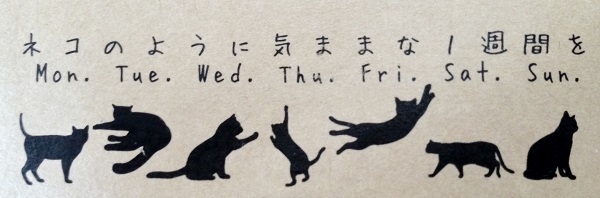 ネコのように気ままな1週間を
Mon. Tue. Wed. Thu. Fri. Sat. Sun.